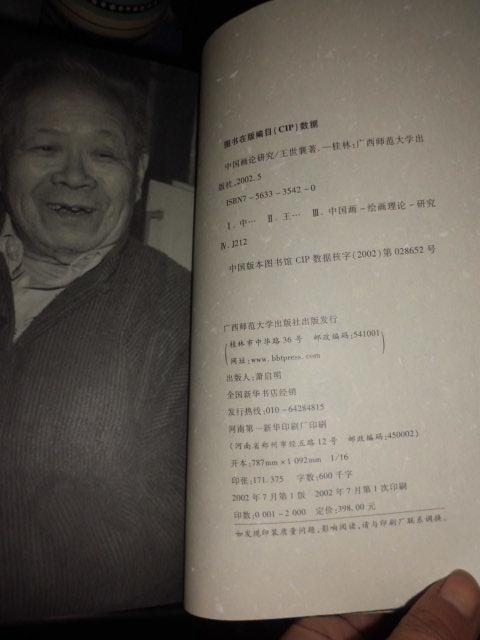 图书在版编目(CIP)数据
中国画论研究/王世襄著.—桂林:广西师范大学出
版社,2002.5
ISBN7-5633-3542-0
Ⅰ.中… Ⅱ.王… Ⅲ.中国画-绘画理论-研究
Ⅳ.J212
中国版本图书馆 CIP 数据核字(2002)第 028652 号
广西师范大学出版社出版发行
(桂林市中华路 36 号 邮政编码:541001
网址:www.bbtpress.com)
出版人:萧启明
全国新华书店经销
发行热线:010-64284815
河南第一新华印刷厂印刷
(河南省郑州市经五路 12 号 邮政编码:450002)
开本:787mm×1 092mm 1/16
印张:171.375 字数:600 千字
2002 年 7 月第 1 版 2002 年 7 月第 1 次印刷
印数:0 001-2 000 定价:398.00 元
如发现印装质量问题,影响阅读,请与印刷厂联系调换。